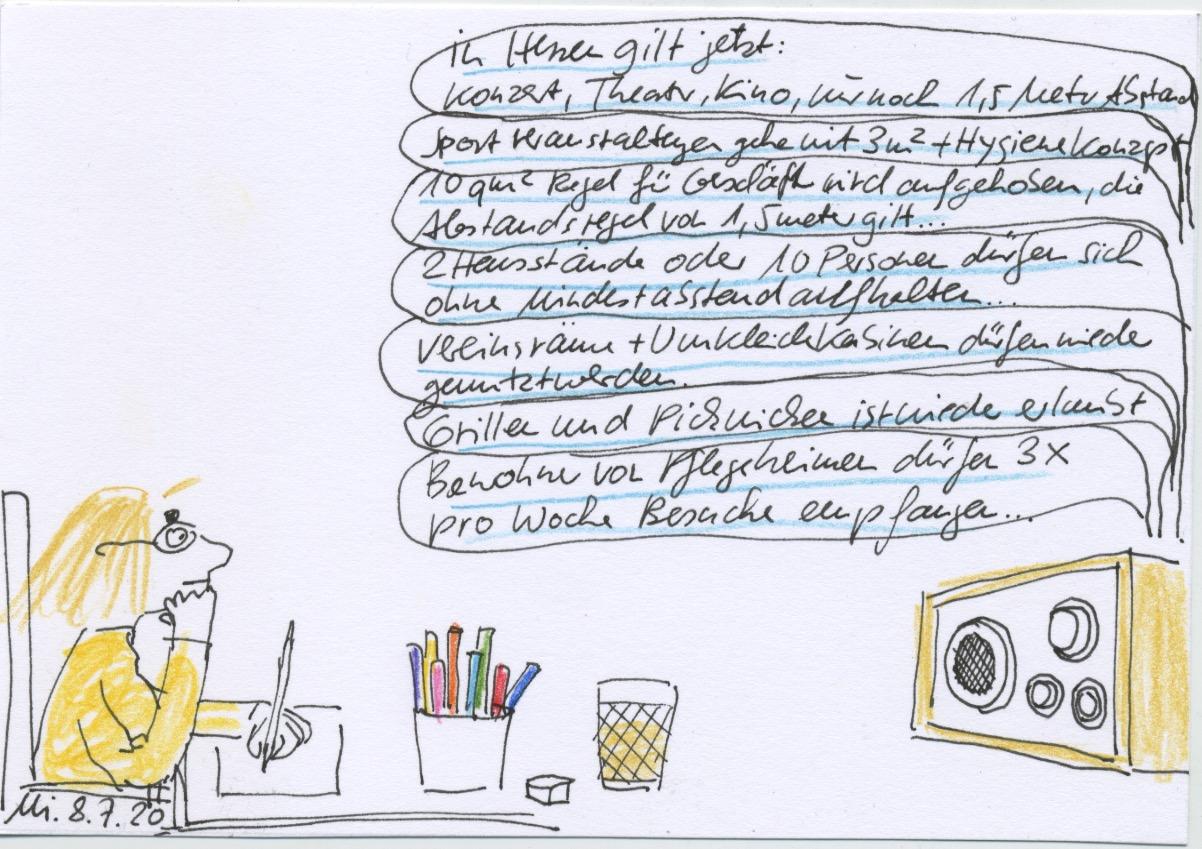 in Hessen gilt jetzt:
Konzert, Theater, Kino, nur noch 1,5 Meter Abstand
Sportveranstaltungen gehe mit 3m² + Hygienekonzept
10 qm² Regel für Geschäfte wird aufgehoben, die
Abstandsregel von 1,5 meter gilt...
2 Hausstände oder 10 Personen dürfen sich
ohne Mindestabstand aufhalten...
Vereinsräume + Umkleidekabinen dürfen wieder
genutzt werden.
Grillen und Picknicken ist wieder erlaubt
Bewohner von Pflegeheimen dürfen 3x
pro Woche Besuche empfangen...
Mi. 8.7.20